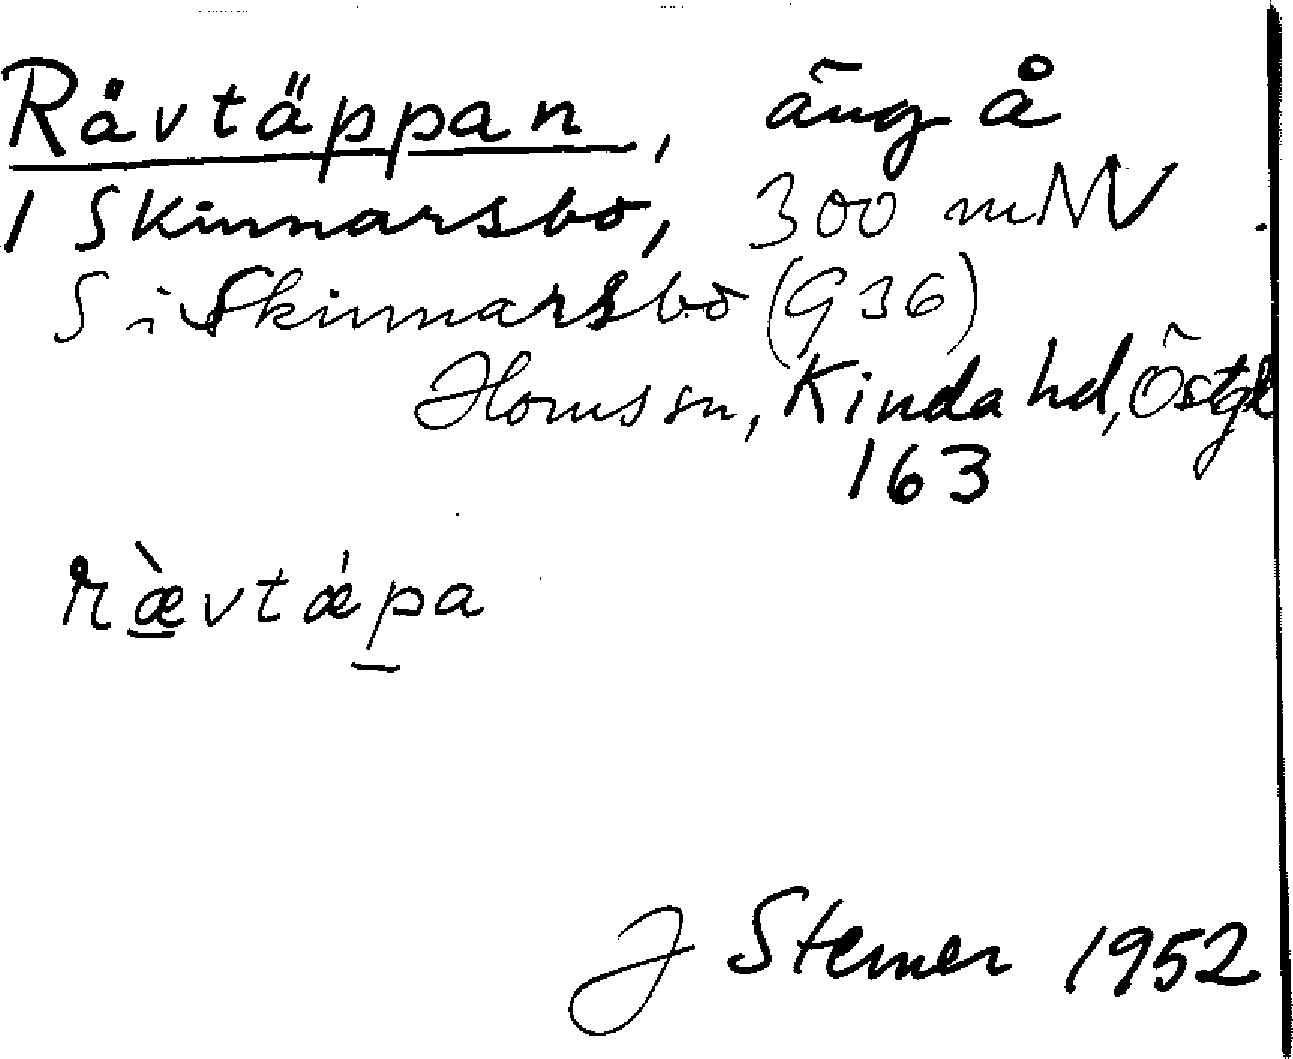 Rävtäppan, äng å
1 Skinnarsbo, 300 m NV
S i Skinnarsbo (936)
Horns sn, Kinda hd, Östgl
163
ræ̀vtǽpa
J Sterner 1952